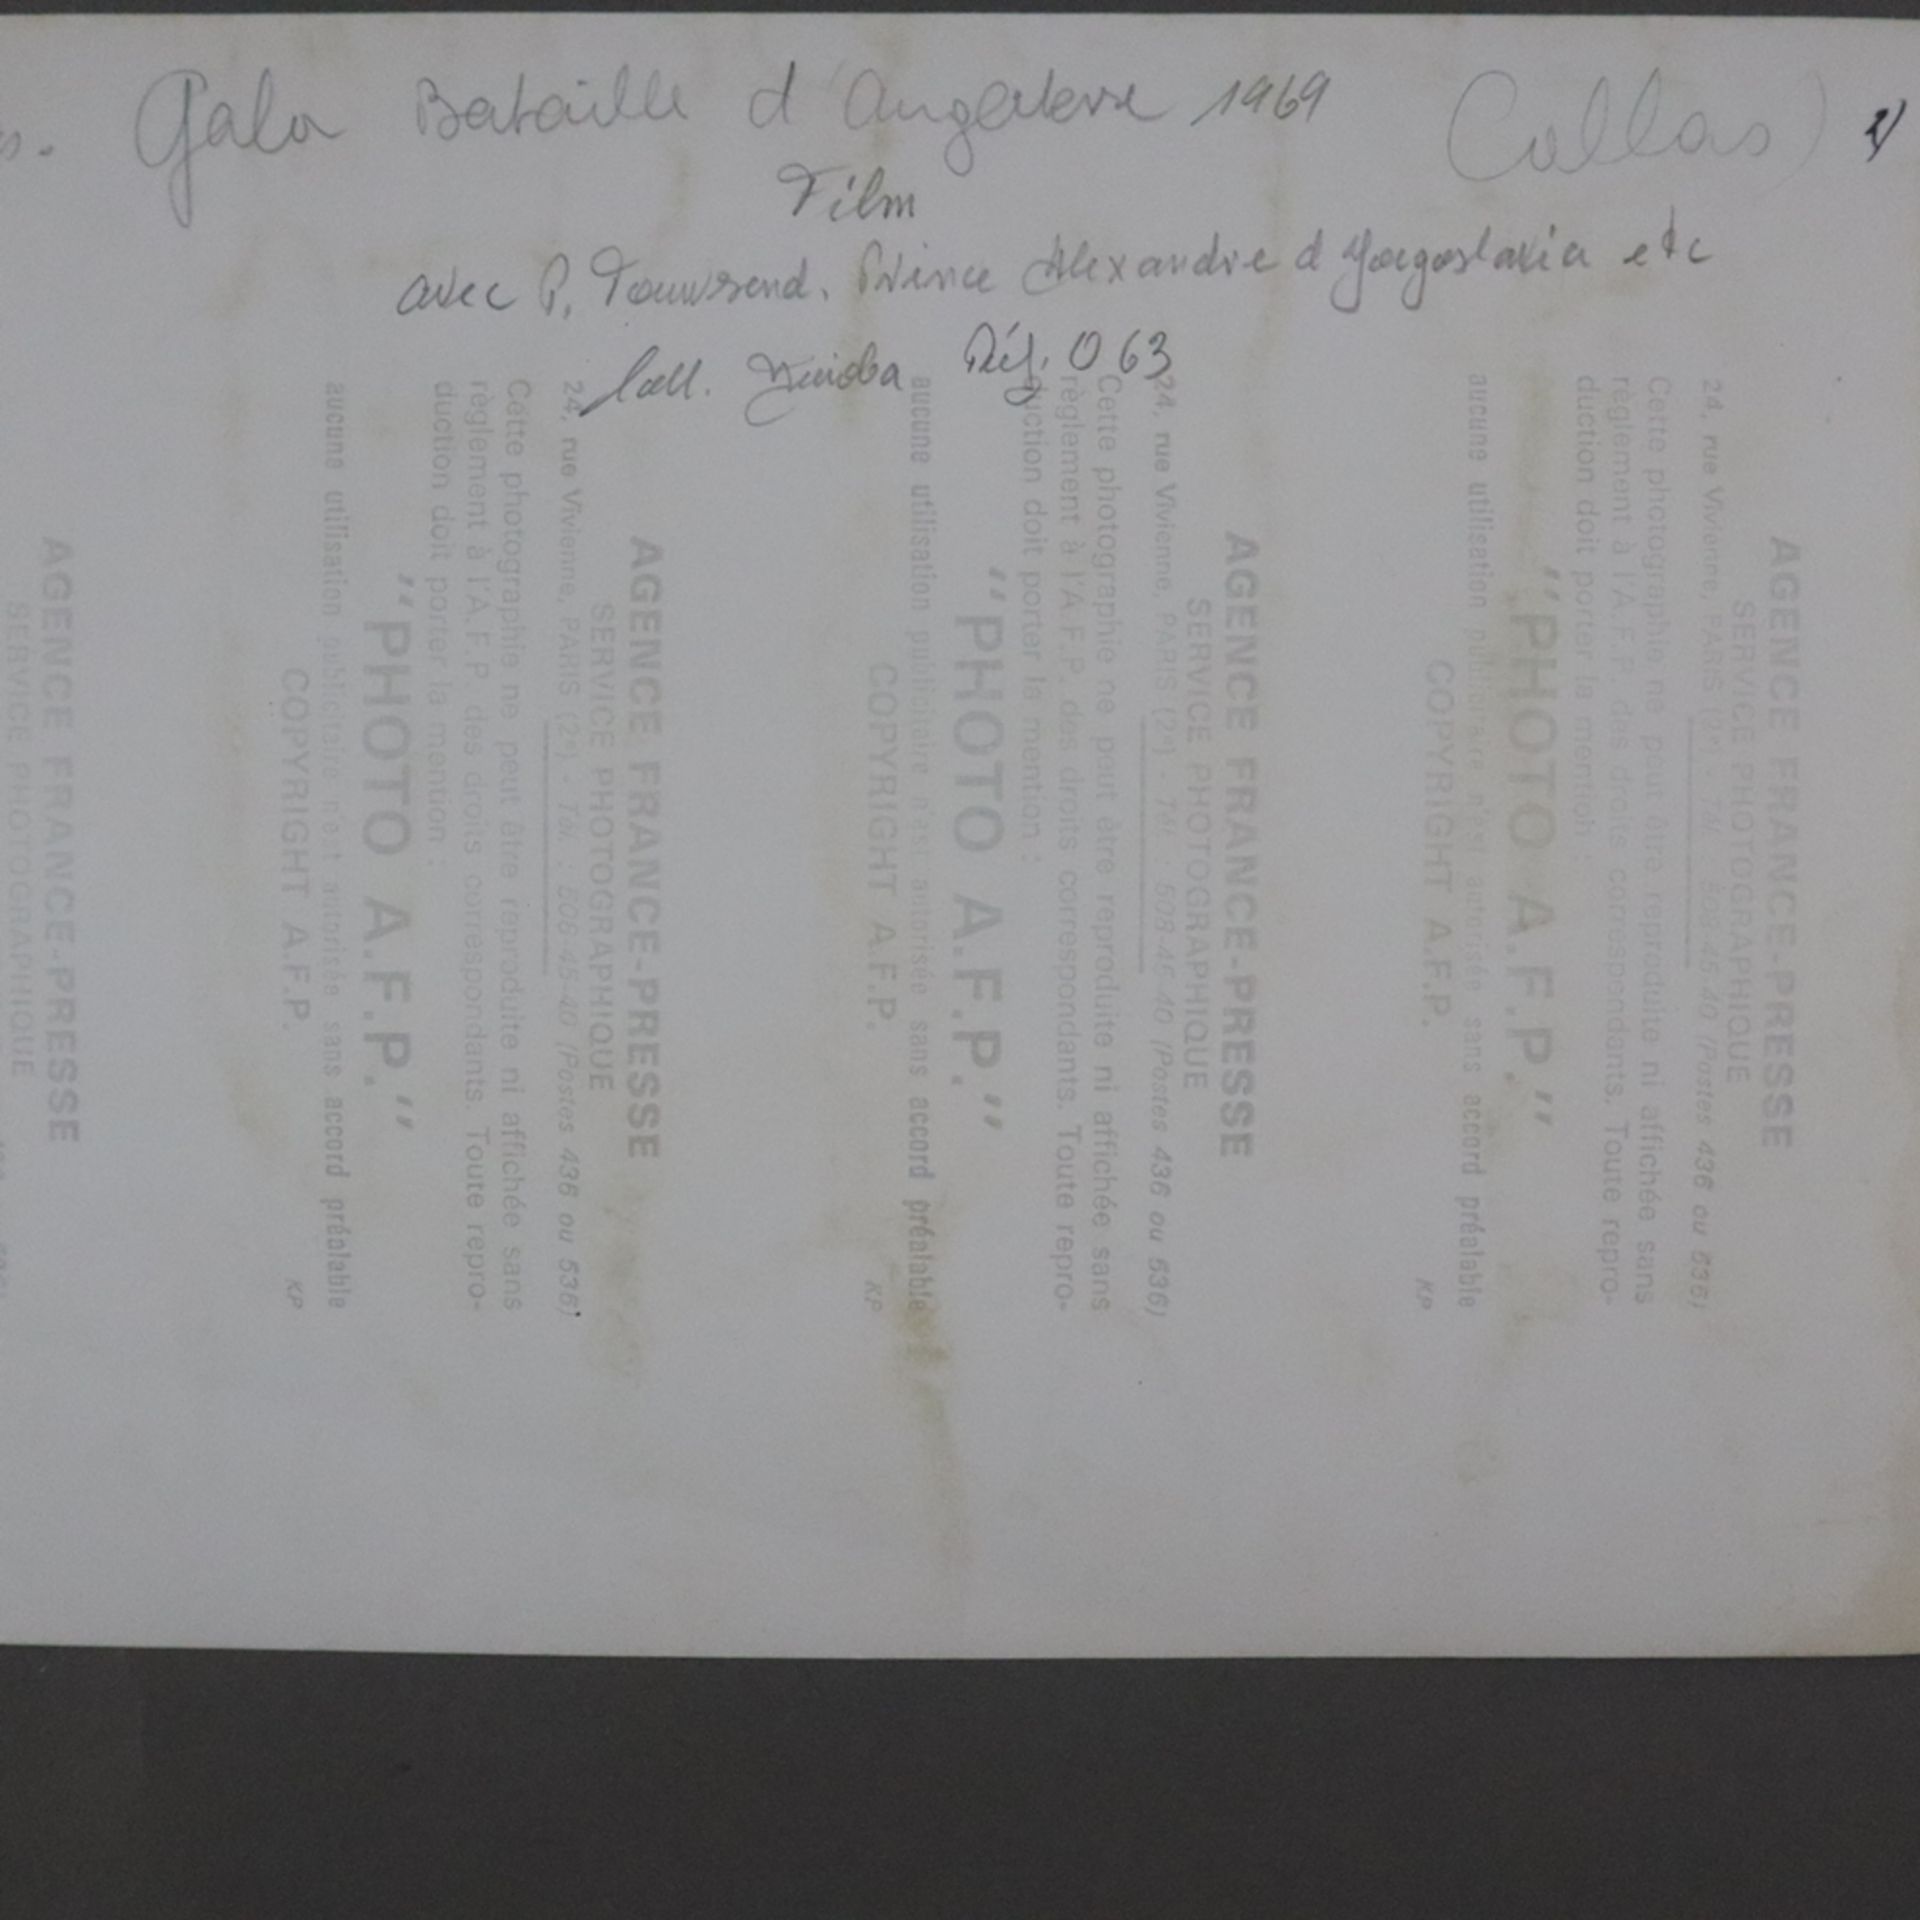 Gala Bataille d'Angleterre 1969 Callas
Film
avec P. Townsend. Prince Alexandre d Yougoslavia etc
Coll. Réf. 063
AGENCE FRANCE-PRESSE
SERVICE PHOTOGRAPHIQUE
24, rue Vivienne, PARIS (2e) - Tél. : 508-45-40 (Postes 436 ou 536)
Cette photographie ne peut être reproduite ni affichée sans
règlement à l'A.F.P. des droits correspondants. Toute repro-
duction doit porter la mention :
"PHOTO A.F.P."
aucune utilisation publicitaire n'est autorisée sans accord préalable
COPYRIGHT A.F.P.
KP
AGENCE FRANCE-PRESSE
SERVICE PHOTOGRAPHIQUE
24, rue Vivienne, PARIS (2e) - Tél. : 508-45-40 (Postes 436 ou 536)
Cette photographie ne peut être reproduite ni affichée sans
règlement à l'A.F.P. des droits correspondants. Toute repro-
duction doit porter la mention :
"PHOTO A.F.P."
aucune utilisation publicitaire n'est autorisée sans accord préalable
COPYRIGHT A.F.P.
KP
AGENCE FRANCE-PRESSE
SERVICE PHOTOGRAPHIQUE
24, rue Vivienne, PARIS (2e) - Tél. : 508-45-40 (Postes 436 ou 536)
Cette photographie ne peut être reproduite ni affichée sans
règlement à l'A.F.P. des droits correspondants. Toute repro-
duction doit porter la mention :
"PHOTO A.F.P."
aucune utilisation publicitaire n'est autorisée sans accord préalable
COPYRIGHT A.F.P.
KP
AGENCE FRANCE-PRESSE
SERVICE PHOTOGRAPHIQUE